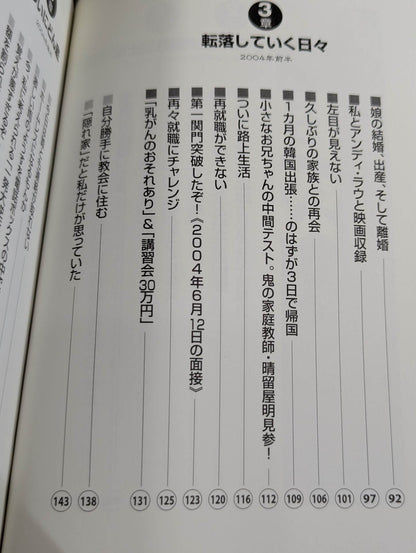 3章
転落していく日々
2004年前半
娘の結婚、出産、そして離婚 92
私とアンディ・ラウと映画収録 97
左目が見えない 101
久しぶりの家族との再会 106
1カ月の韓国出張……のはずが3日で帰国 109
小さなお兄ちゃんの中間テスト。鬼の家庭教師・晴留屋明見参！ 112
ついに路上生活 116
再就職ができない 120
第一関門突破したぞ！《2004年6月12日の面接》 123
再々就職にチャレンジ 125
「乳がんのおそれあり」&「講習会30万円」 131
自分勝手に教会に住む 138
「隠れ家」だと私だけが思っていた 143